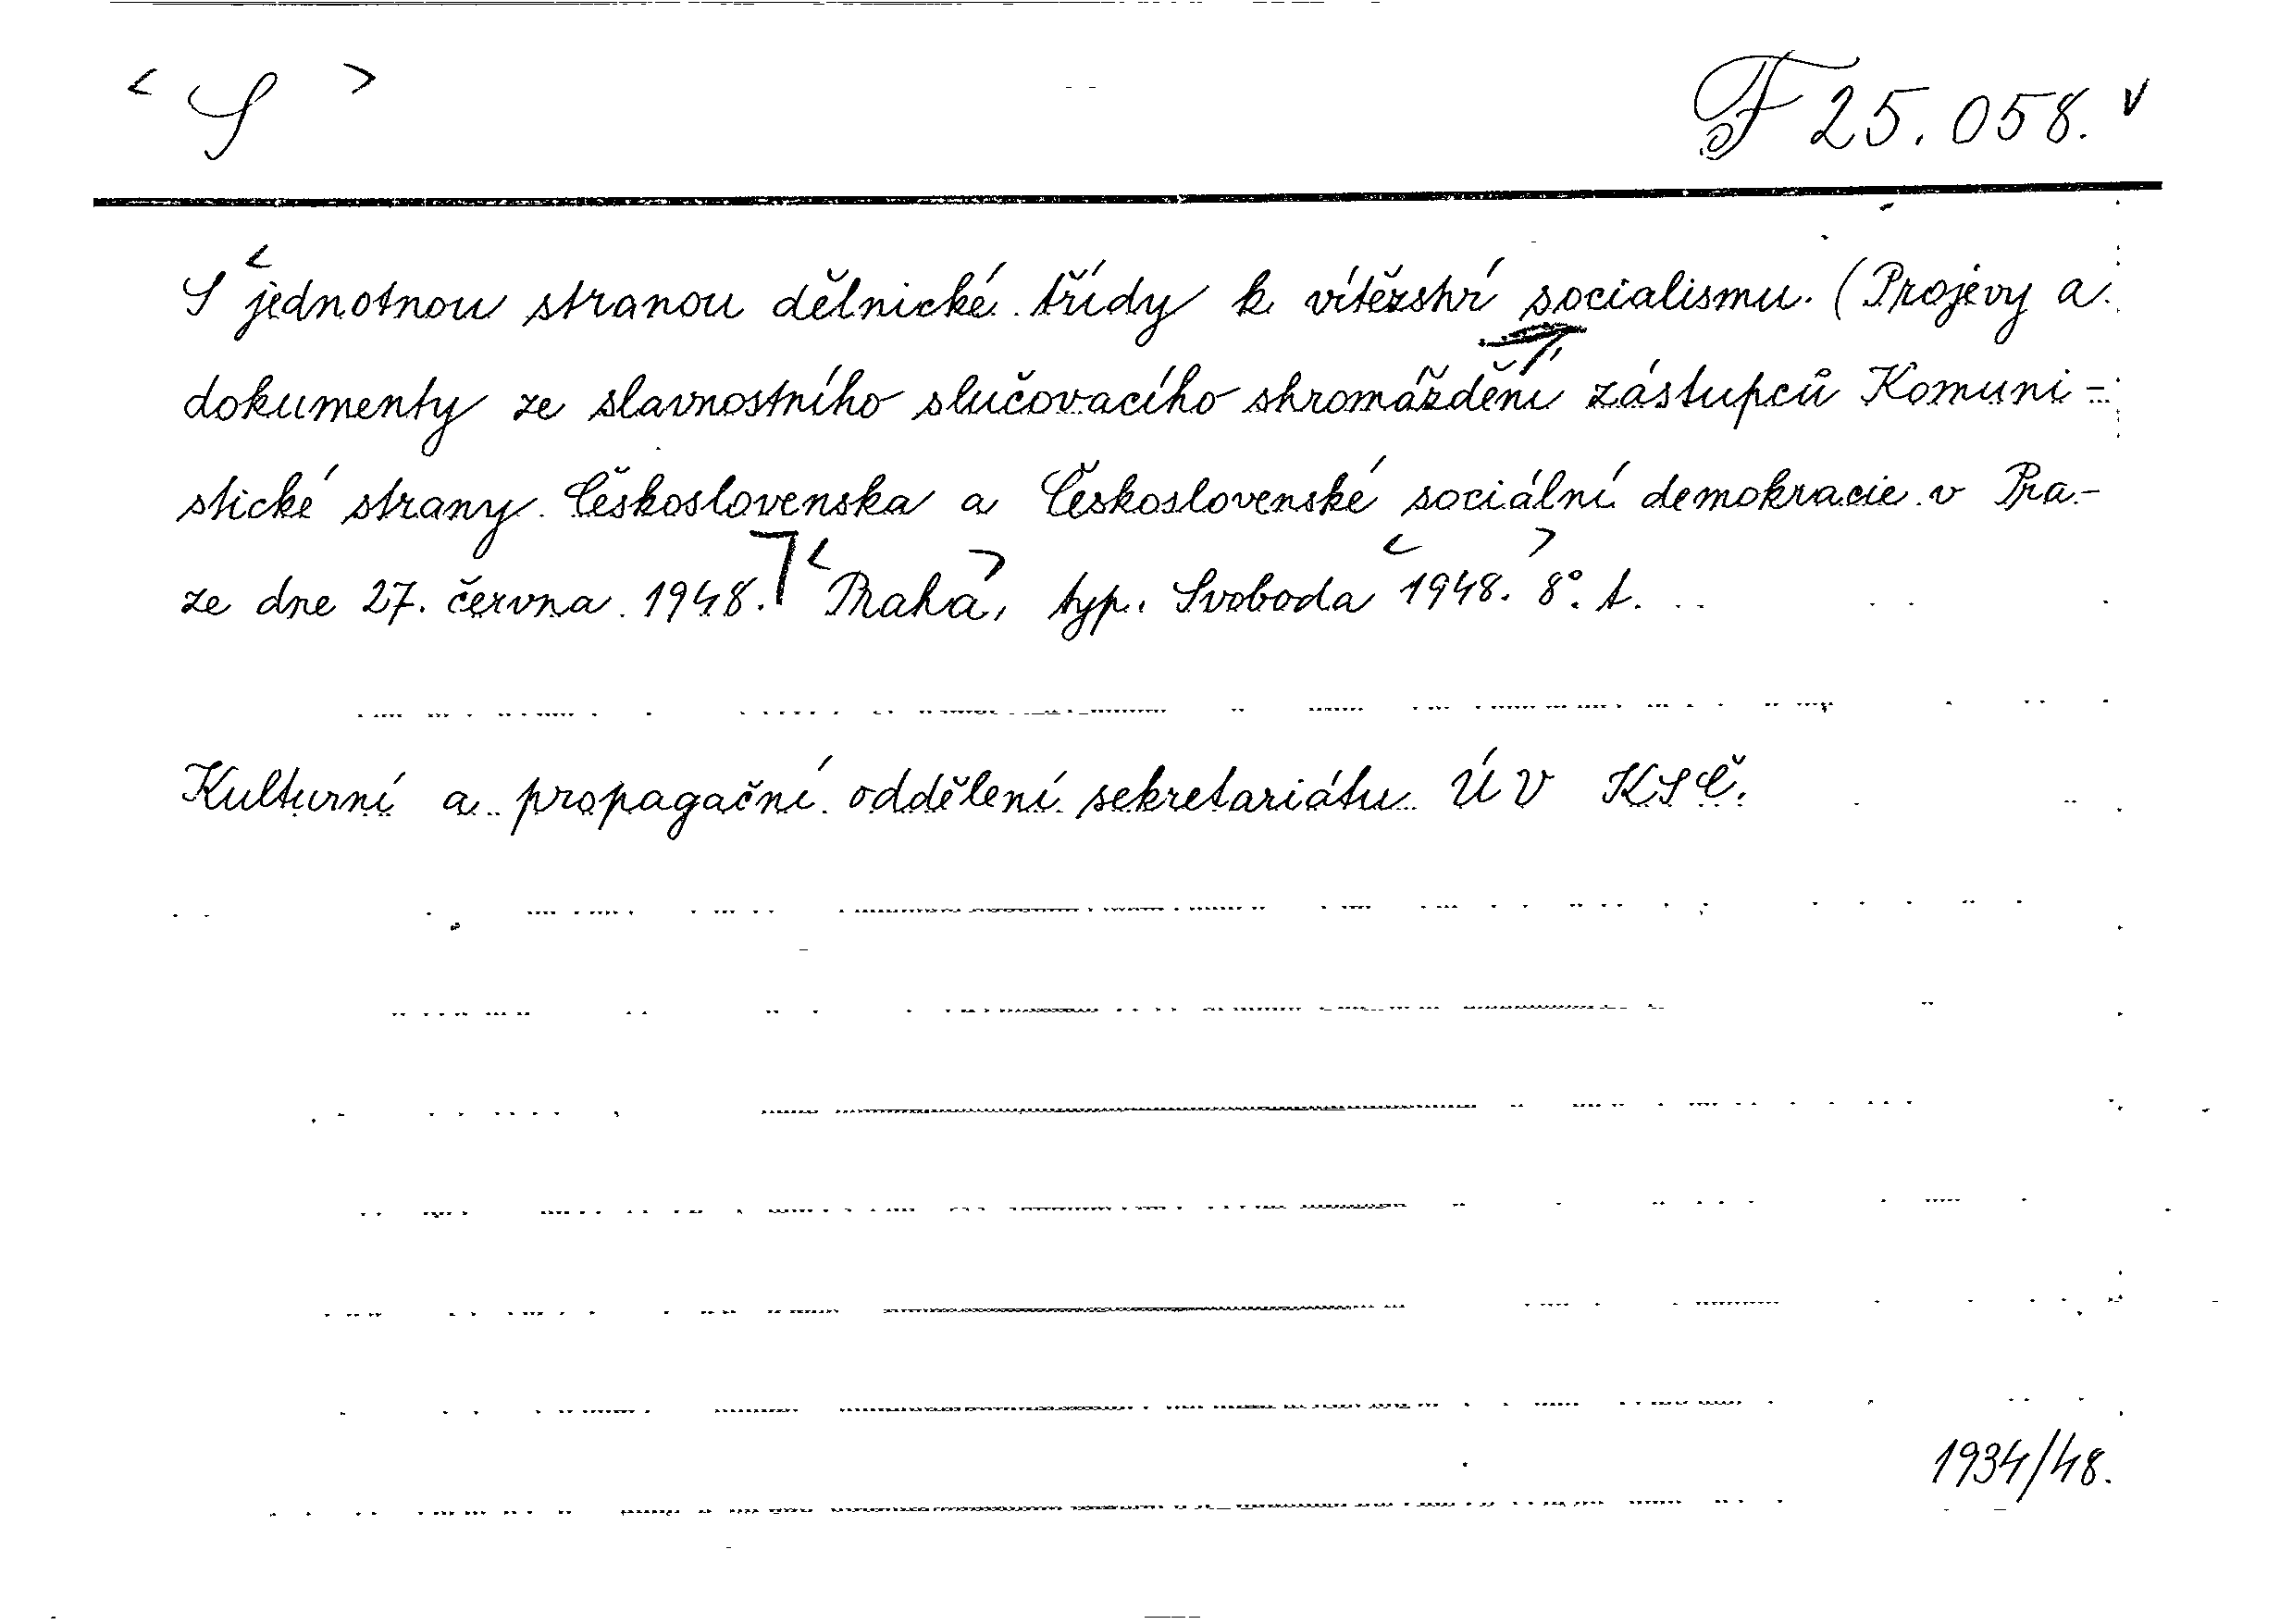 < S > F 25.058. v
S jednotnou stranou dělnické třídy k vítězství socialismu. (Projevy a
dokumenty ze slavnostního slučovacího shromáždění zástupců Komuni-
stické strany Československa a Československé sociální demokracie v Pra-
ze dne 27. června 1948. Praha, typ. Svoboda 1948. 8°. t.
Kulturní a propagační oddělení sekretariátu ÚV KSČ.
1934/48.